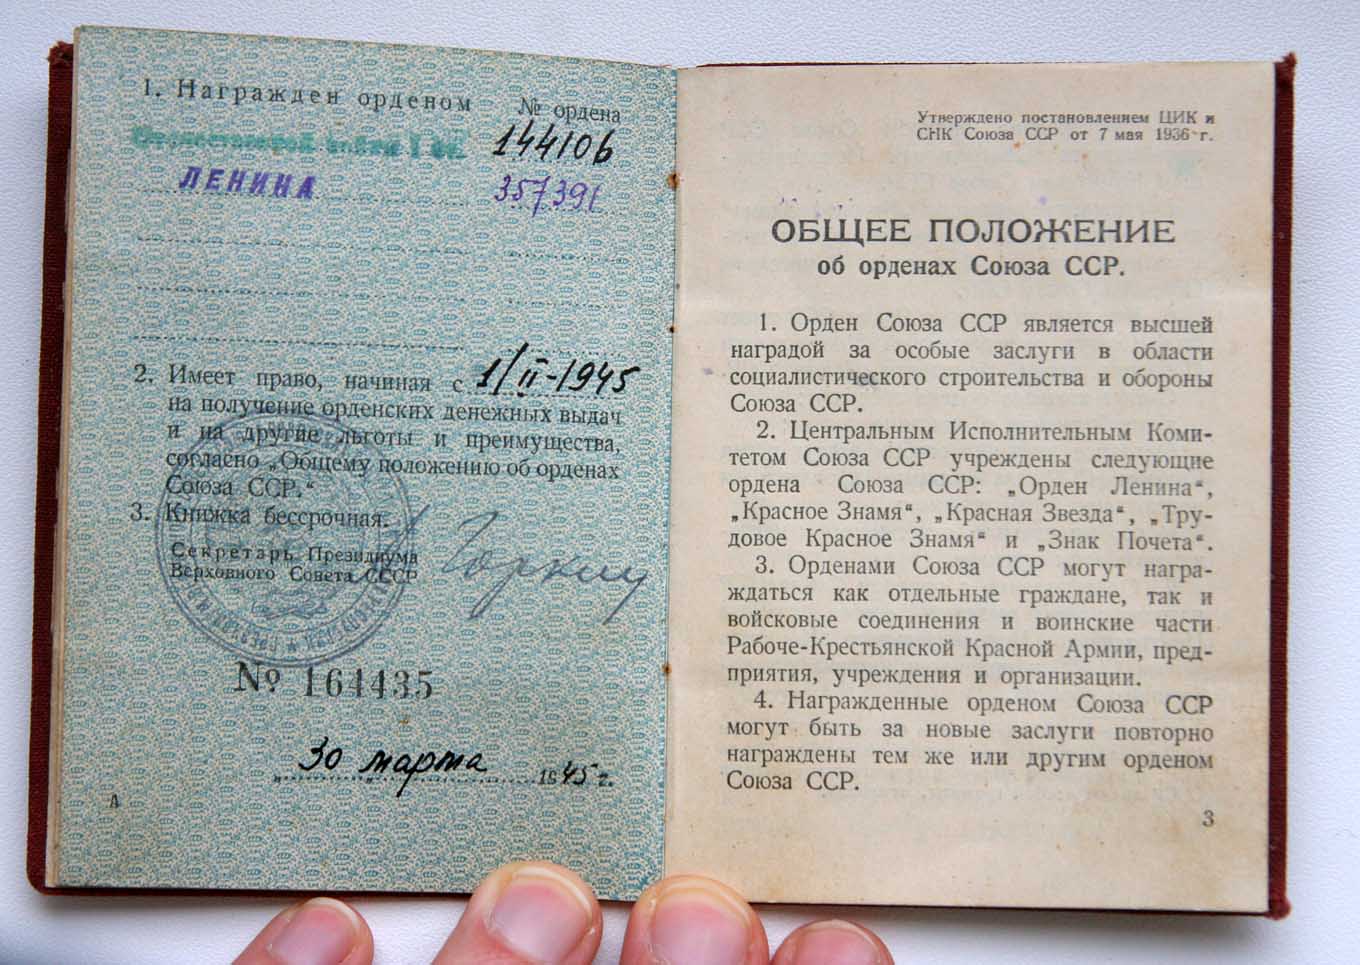 1. Награжден орденом № ордена
Отечественной войны I ст. 144106
ЛЕНИНА 357391
2. Имеет право, начиная с 1/II-1945
на получение орденских денежных выдач
и на другие льготы и преимущества,
согласно „Общему положению об орденах
Союза ССР.“
3. Книжка бессрочная.
Секретарь Президиума
Верховного Совета СССР
Горкин
№ 164435
30 марта 1945 г.
А
Утверждено постановлением ЦИК и
СНК Союза ССР от 7 мая 1936 г.
ОБЩЕЕ ПОЛОЖЕНИЕ
об орденах Союза ССР.
1. Орден Союза ССР является высшей
наградой за особые заслуги в области
социалистического строительства и обороны
Союза ССР.
2. Центральным Исполнительным Коми-
тетом Союза ССР учреждены следующие
ордена Союза ССР: „Орден Ленина“,
„Красное Знамя“, „Красная Звезда“, „Тру-
довое Красное Знамя“ и „Знак Почета“.
3. Орденами Союза ССР могут награ-
ждаться как отдельные граждане, так и
войсковые соединения и воинские части
Рабоче-Крестьянской Красной Армии, пред-
приятия, учреждения и организации.
4. Награжденные орденом Союза ССР
могут быть за новые заслуги повторно
награждены тем же или другим орденом
Союза ССР.
3